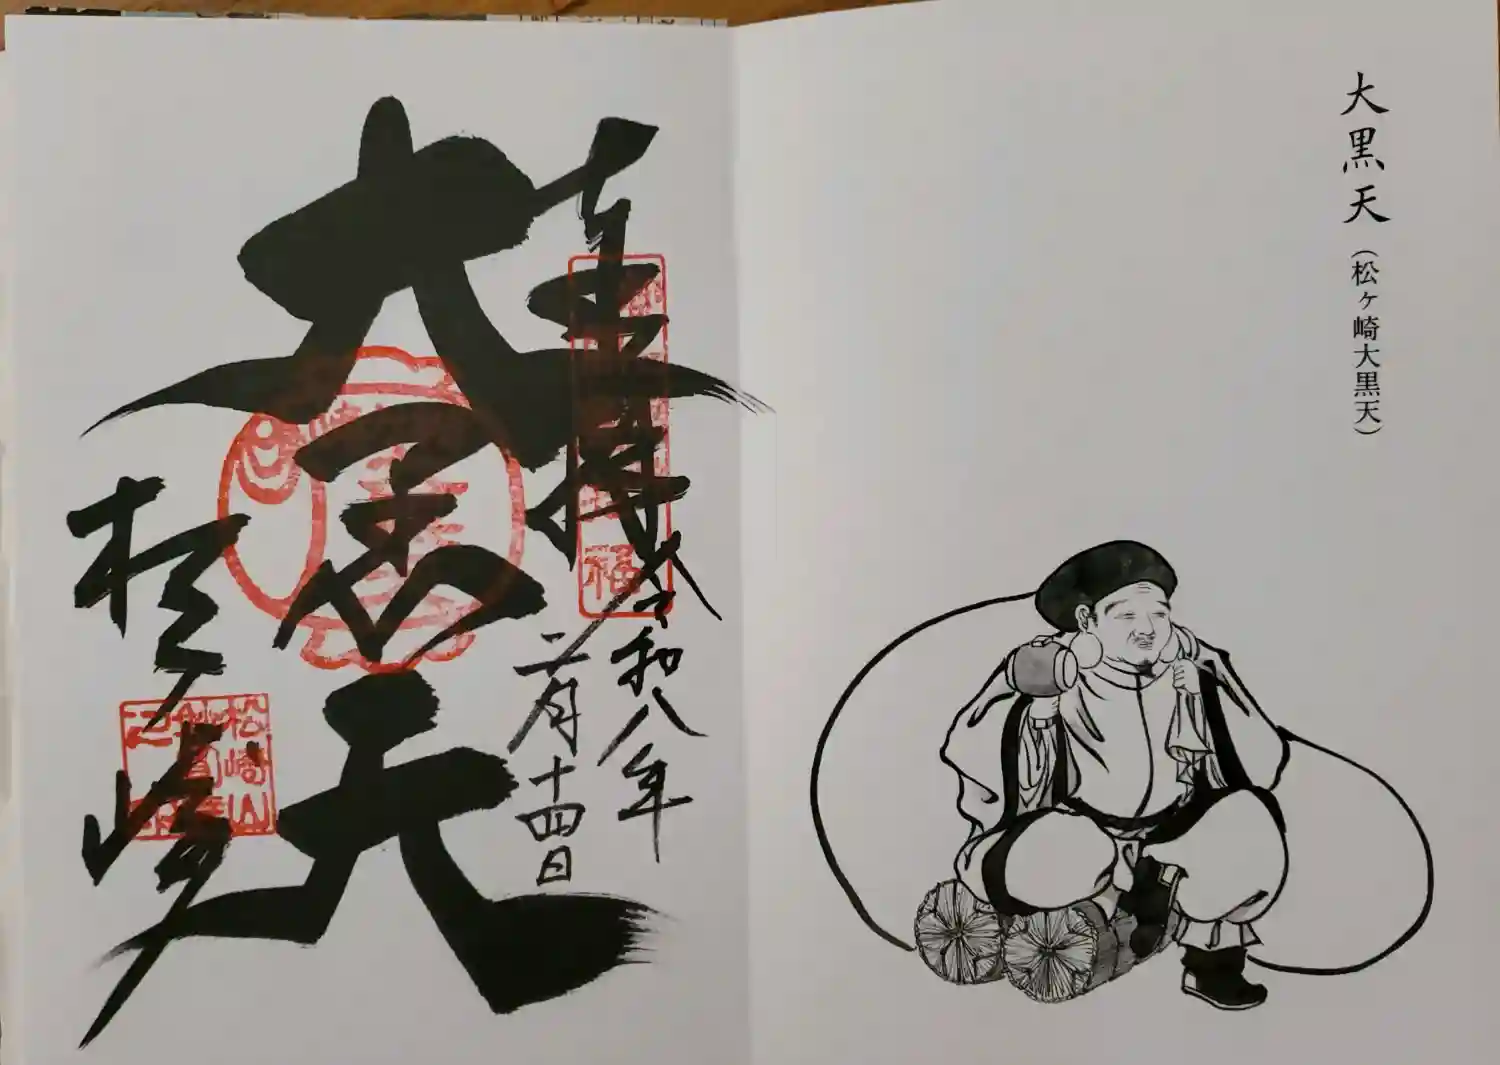 大黒天
(松ヶ崎大黒天)
奉拝
令和八年
二月十四日
大黒天
松ヶ崎
福
松崎山